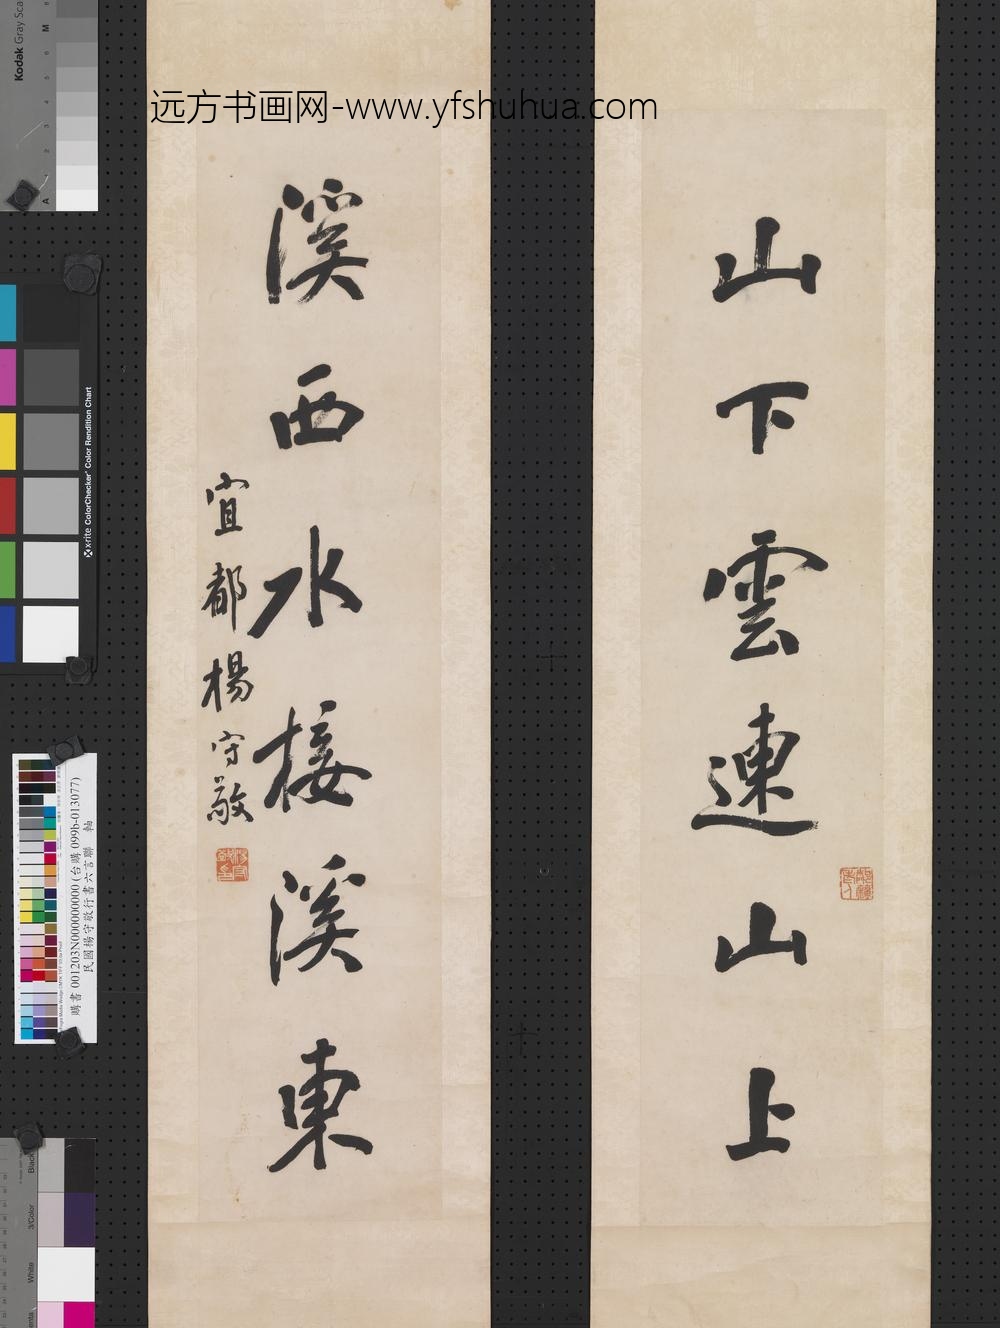 远方书画网-www.yfshuhua.com
山下雲連山上
溪西水接溪東
宜都楊守敬
Kodak Gray Sca
A 1 2 3 4 5 M 8
x-rite ColorChecker® Color Rendition Chart
購書 001203N000000000 (台購 099b-013077)
民國楊守敬行書六言聯 軸
Black
3/Color
White